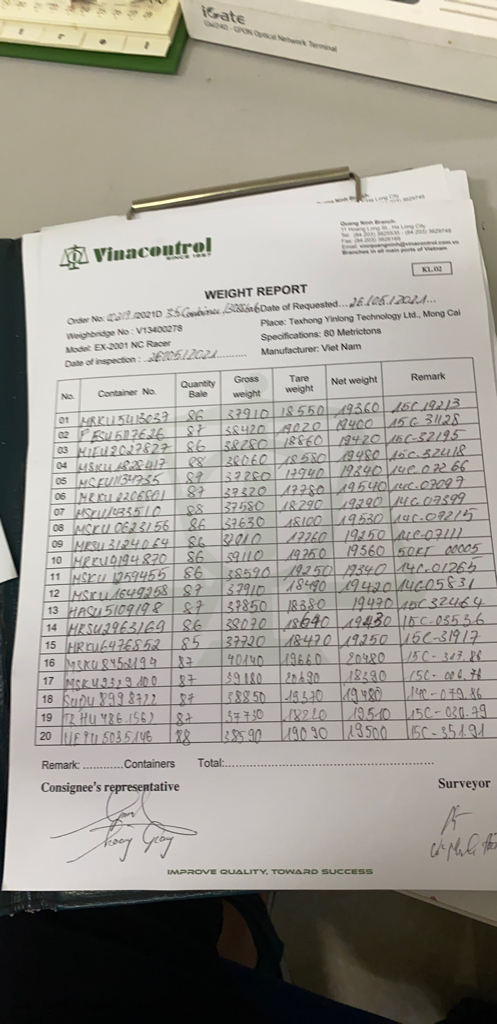 iGate
GPON Optical Network Terminal
Ha Long City
Quang Ninh Branch:
11 Hoang Long St., Ha Long City
Email: vinquangninh@vinacontrol.com.vn
Branches in all main ports of Vietnam
Vinacontrol
SINCE 1957
KL.02
WEIGHT REPORT
Order No: /2021D Date of Requested: 26/05/2021
Weighbridge No : V13400278 Place: Texhong Yinlong Technology Ltd., Mong Cai
Model: EX-2001 NC Racer Specifications: 80 Metrictons
Date of inspection : 26/05/2021 Manufacturer: Viet Nam
No. Container No. Quantity Bale Gross weight Tare weight Net weight Remark
01 MRKU5413037 86 37910 18550 19360 15C 19213
02 87 38420 19020 19400 15G 31128
03 86 38280 18860 19420 15C-32195
04 88 38060 18580 19480 15C-32418
05 87 37280 17940 19340 14C.07266
06 87 37320 17780 19540 14C.07097
07 88 37580 18290 19290 14C.07399
08 MSKU0623156 86 37630 18100 19530 14C-07215
09 MRSU3124064 86 17760 19250 14C-07111
10 MRKU0194870 86 39110 19750 19360 00005
11 MSKU1259455 86 38590 19250 19340 14C-01265
12 MSKU1649258 87 37910 18490 19420 14C05831
13 HASU5109198 87 37850 18380 19470 15C32464
14 MRSU2963169 86 38070 18640 19430 15C-03536
15 HRKU6476852 85 37720 18470 19250 15C-31917
16 MSKU8453194 87 40140 19660 20480 15C-
17 87 15C-
18 87 38850 19370 19480 14C-079.86
19 87 37730 18220 19510 15C-030.79
20 88 38590 19090 19500 15C-351.91
Remark: ............Containers Total:
Consignee's representative Surveyor
IMPROVE QUALITY, TOWARD SUCCESS